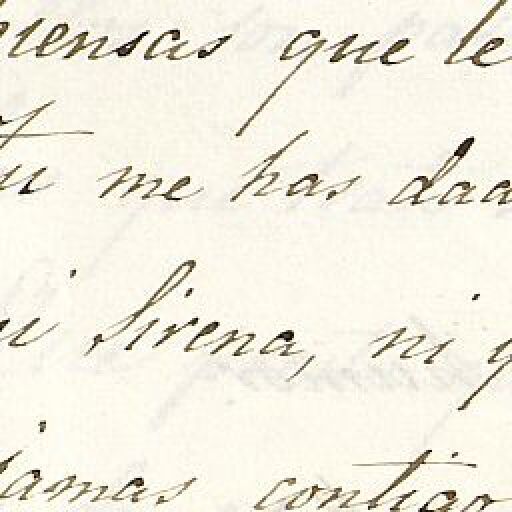 piensas que le
tu me has daa
ni Sirena, ni y
jamas contigo